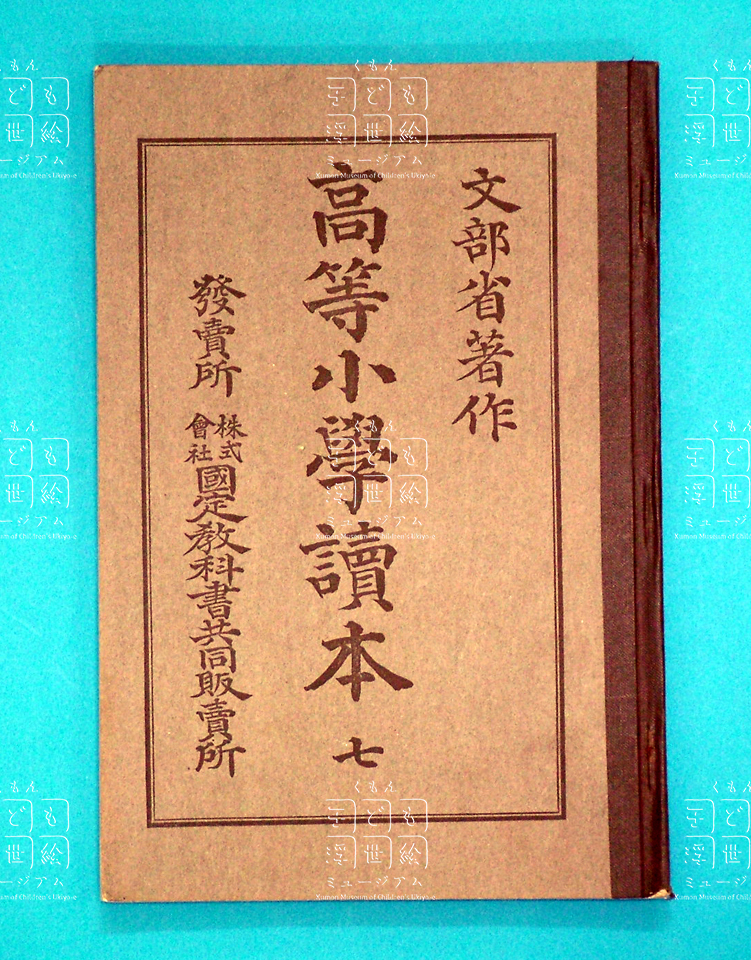 文部省著作
高等小學讀本 七
發賣所 株式會社國定教科書共同販賣所
くもん
子ども
浮世絵
ミュージアム
Kumon Museum of Children's Ukiyo-e